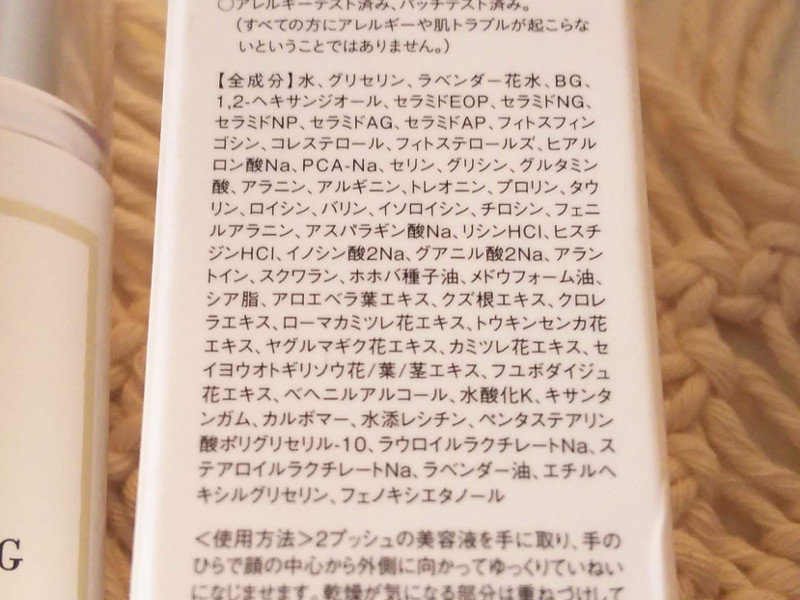 ○アレルギーテスト済み、パッチテスト済み。
(すべての方にアレルギーや肌トラブルが起こらな
いということではありません。)
【全成分】水、グリセリン、ラベンダー花水、BG、
1,2-ヘキサンジオール、セラミドEOP、セラミドNG、
セラミドNP、セラミドAG、セラミドAP、フィトスフィン
ゴシン、コレステロール、フィトステロールズ、ヒアル
ロン酸Na、PCA-Na、セリン、グリシン、グルタミン
酸、アラニン、アルギニン、トレオニン、プロリン、タウ
リン、ロイシン、バリン、イソロイシン、チロシン、フェニ
ルアラニン、アスパラギン酸Na、リシンHCl、ヒスチ
ジンHCl、イノシン酸2Na、グアニル酸2Na、アラン
トイン、スクワラン、ホホバ種子油、メドウフォーム油、
シア脂、アロエベラ葉エキス、クズ根エキス、クロレ
ラエキス、ローマカミツレ花エキス、トウキンセンカ花
エキス、ヤグルマギク花エキス、カミツレ花エキス、セ
イヨウオトギリソウ花/葉/茎エキス、フユボダイジュ
花エキス、ベヘニルアルコール、水酸化K、キサンタ
ンガム、カルボマー、水添レシチン、ペンタステアリン
酸ポリグリセリル-10、ラウロイルラクチレートNa、ス
テアロイルラクチレートNa、ラベンダー油、エチルヘ
キシルグリセリン、フェノキシエタノール
＜使用方法＞2プッシュの美容液を手に取り、手の
ひらで顔の中心から外側に向かってゆっくりていねい
になじませます。乾燥が気になる部分は重ねづけして
G